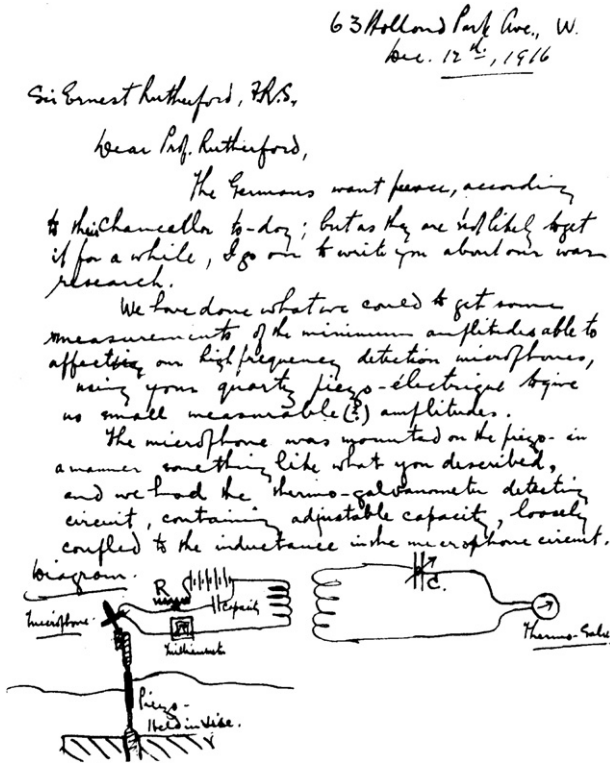 63 Holland Park Ave., W.
Dec. 12th, 1916
Sir Ernest Rutherford, F.R.S.,
Dear Prof. Rutherford,
The Germans want peace, according
to their Chancellor to-day; but as they are not likely to get
it for a while, I go on to write you about our war
research.
We have done what we could to get some
measurements of the minimum amplitudes able to
affect our high frequency detection microphones,
using your quartz piezo-électrique to give
us small measurable (?) amplitudes.
The microphone was mounted on the piezo- in
a manner something like what you described,
and we had the thermo-galvanometer detecting
circuit, containing adjustable capacity, loosely
coupled to the inductance in the microphone circuit.
Diagram.
R
Capacity
C.
Microphone.
Milliammeter
Thermo-Galv.
Piezo-
Held in vise.